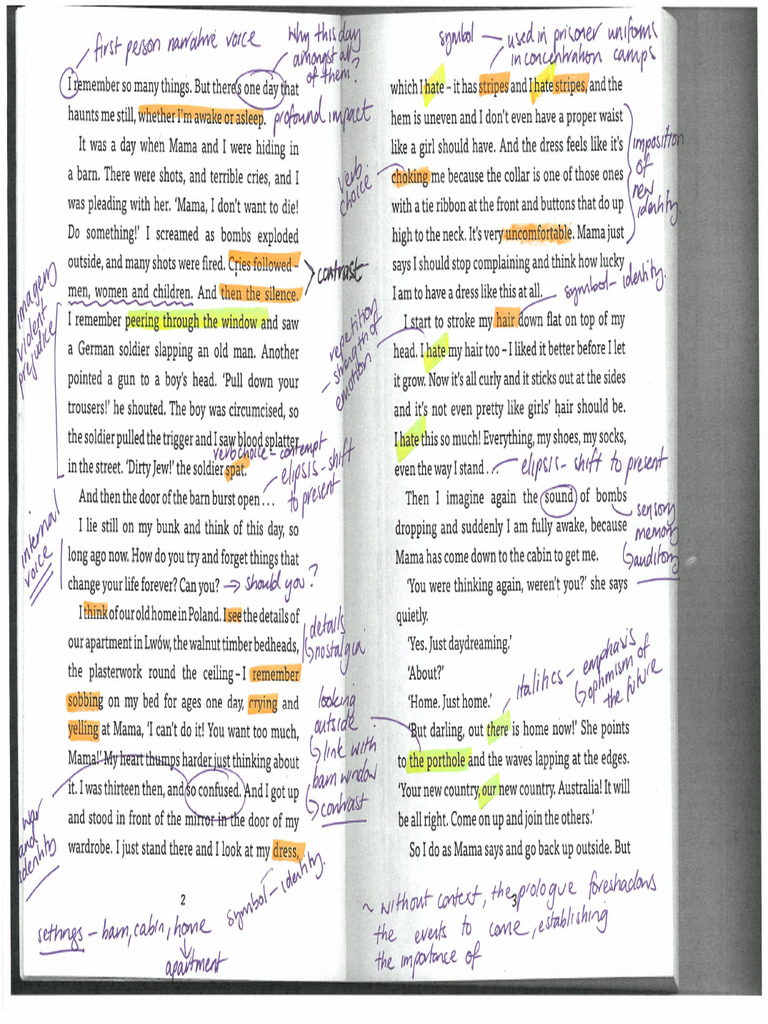 first person narrative voice
Why this day
amongst all
of them?
I remember so many things. But there's one day that
haunts me still, whether I'm awake or asleep.
profound impact
It was a day when Mama and I were hiding in
a barn. There were shots, and terrible cries, and I
was pleading with her. 'Mama, I don't want to die!
Do something!' I screamed as bombs exploded
outside, and many shots were fired. Cries followed –
men, women and children. And then the silence.
contrast
I remember peering through the window and saw
a German soldier slapping an old man. Another
pointed a gun to a boy's head. 'Pull down your
trousers!' he shouted. The boy was circumcised, so
the soldier pulled the trigger and I saw blood splatter
in the street. 'Dirty Jew!' the soldier spat.
imagery
violent
prejudice
verb choice – contempt
And then the door of the barn burst open ...
elipsis – shift
to present
I lie still on my bunk and think of this day, so
long ago now. How do you try and forget things that
change your life forever? Can you?
should you?
internal
voice
I think of our old home in Poland. I see the details of
our apartment in Lwów, the walnut timber bedheads,
the plasterwork round the ceiling – I remember
sobbing on my bed for ages one day, crying and
yelling at Mama, 'I can't do it! You want too much,
Mama!' My heart thumps harder just thinking about
it. I was thirteen then, and so confused. And I got up
and stood in front of the mirror in the door of my
wardrobe. I just stand there and I look at my dress,
details
nostalgia
looking
outside
link with
barn window
contrast
war
and
identity
symbol – identity.
2
settings – barn, cabin, home
apartment
symbol – used in prisoner uniforms
in concentration camps
which I hate – it has stripes and I hate stripes, and the
hem is uneven and I don't even have a proper waist
like a girl should have. And the dress feels like it's
choking me because the collar is one of those ones
with a tie ribbon at the front and buttons that do up
high to the neck. It's very uncomfortable. Mama just
says I should stop complaining and think how lucky
I am to have a dress like this at all.
verb
choice
imposition
of
new
identity.
symbol – identity.
I start to stroke my hair down flat on top of my
head. I hate my hair too – I liked it better before I let
it grow. Now it's all curly and it sticks out at the sides
and it's not even pretty like girls' hair should be.
I hate this so much! Everything, my shoes, my socks,
even the way I stand ...
repetition
– strength of
emotion
elipsis – shift to present
Then I imagine again the sound of bombs
dropping and suddenly I am fully awake, because
Mama has come down to the cabin to get me.
sensory
memory
auditory
'You were thinking again, weren't you?' she says
quietly.
'Yes. Just daydreaming.'
'About?'
'Home. Just home.'
italics – emphasis
optimism of
the future
'But darling, out there is home now!' She points
to the porthole and the waves lapping at the edges.
'Your new country, our new country. Australia! It will
be all right. Come on up and join the others.'
So I do as Mama says and go back up outside. But
3
~ without context, the prologue foreshadows
the events to come, establishing
the importance of